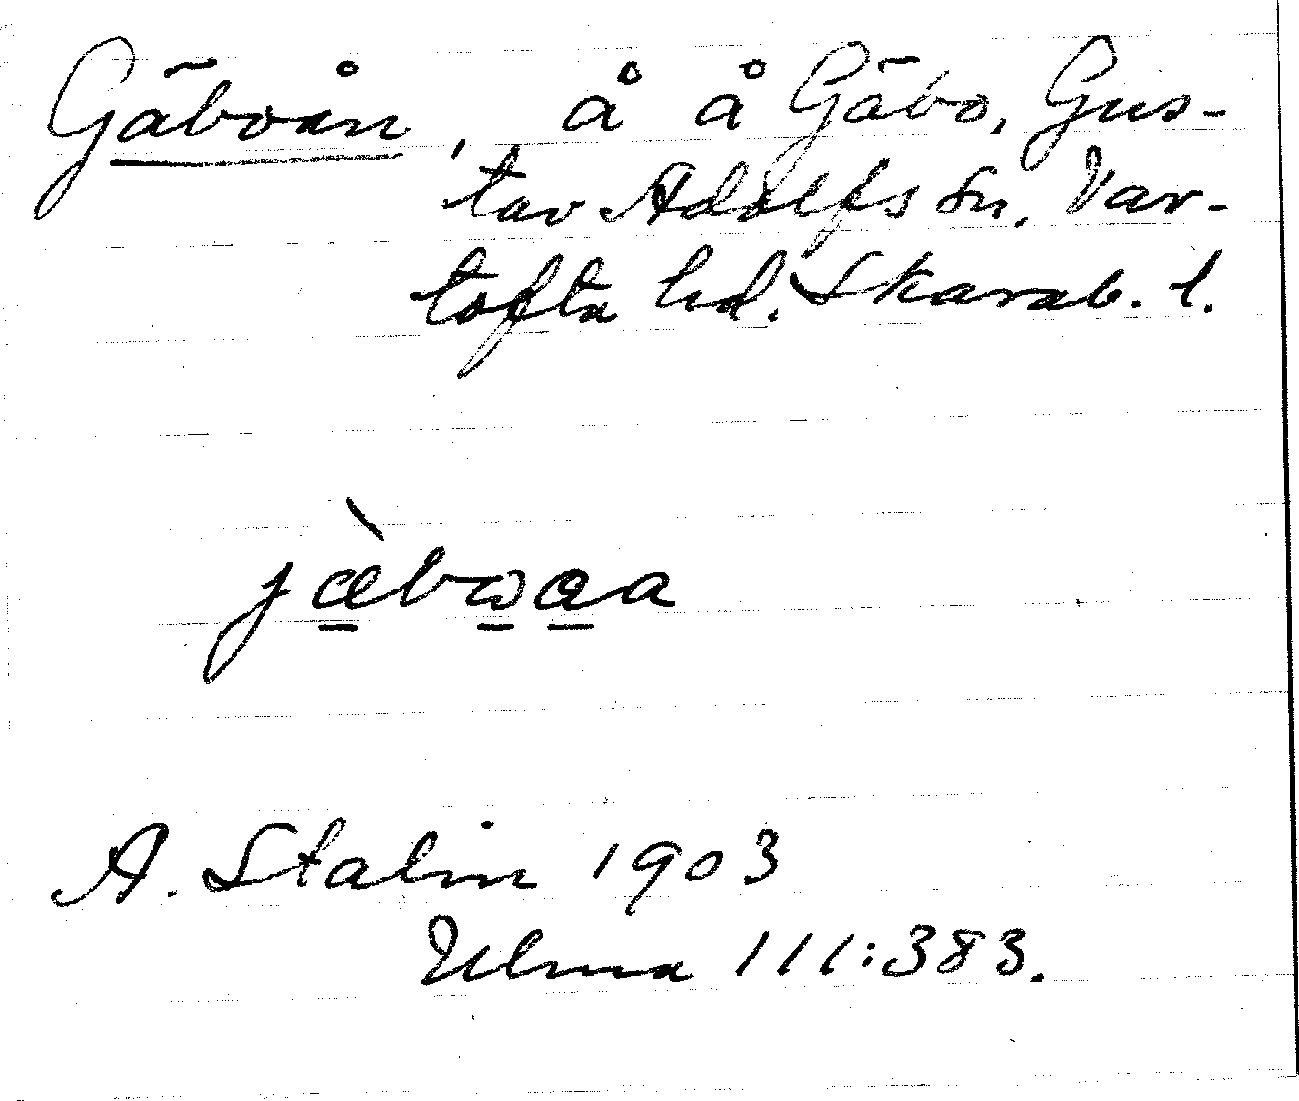 Gäboån, å å Gäbo, Gus-
tav Adolfs sn. Var-
tofta hd. Skarab. l.
jæ̀bωaa
A. Stalin 1903
Ulma 111:383.